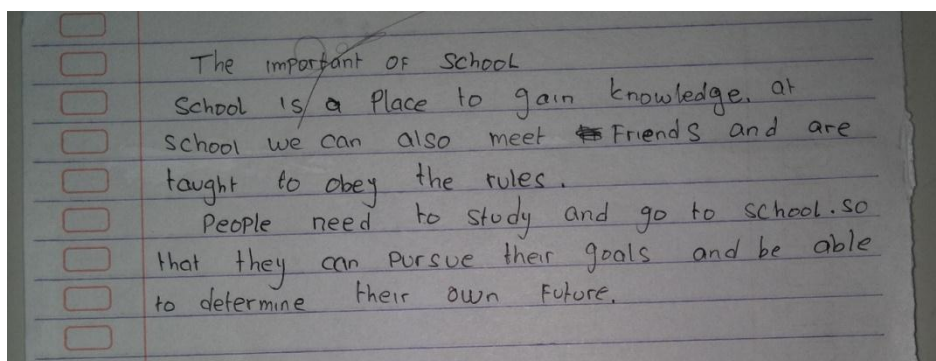 The important OF School
School is a Place to gain knowledge. at
school we can also meet Friends and are
taught to obey the rules.
People need to study and go to school. so
that they can pursue their goals and be able
to determine their own Future.